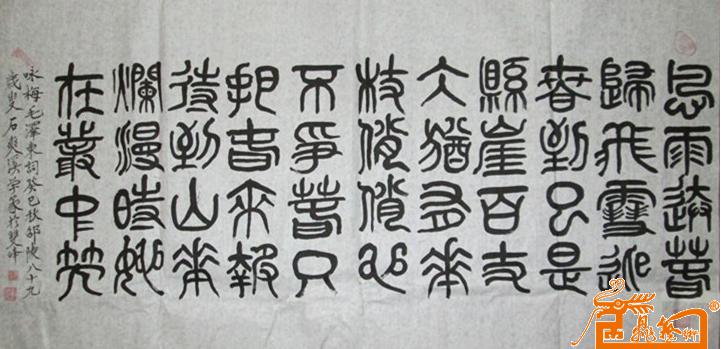 風雨送春
歸飛雪迎
春到已是
縣崖百丈
冰猶有花
枝俏俏也
不爭春只
把春來報
待到山花
爛漫時她
在叢中笑
咏梅毛澤東詞癸巳秋邵陵八十九
歲叟石爽溪學篆於雙峰